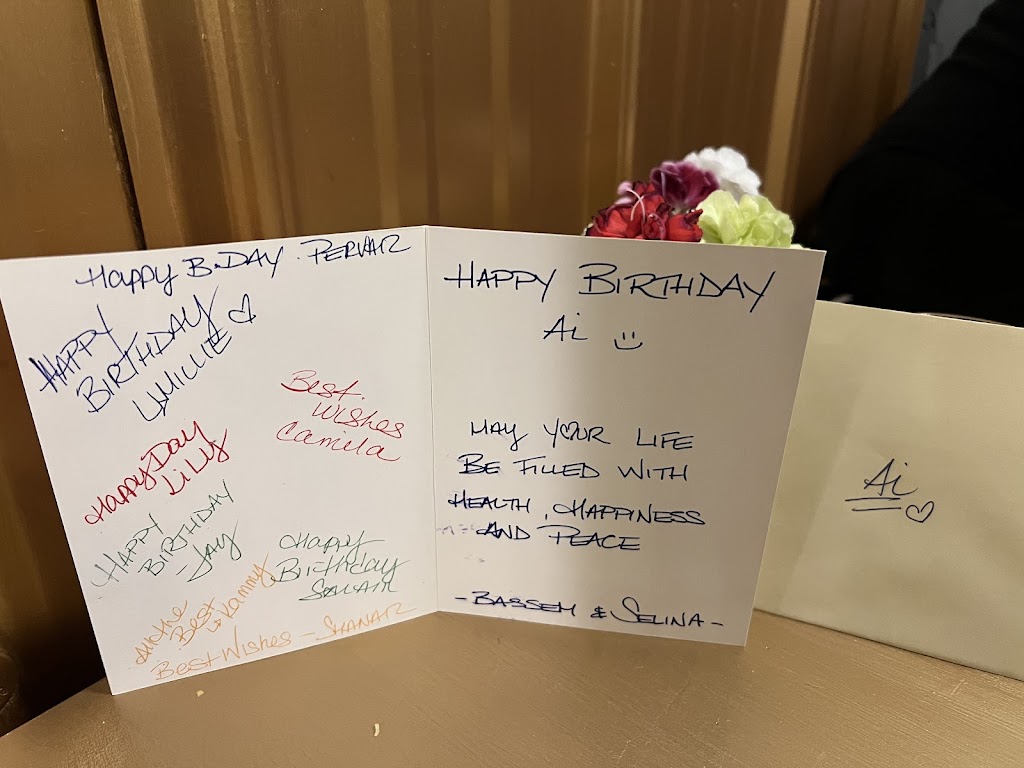 Happy B.DAY. PERVAIZ
HAPPY
BIRTHDAY
UMILLIE
Best
Wishes
Camila
Happy Day
Lily
HAPPY
BIRTHDAY
- Jay
Happy
Birthday
All the
Best
Kammy
Best Wishes - SHANAZ
HAPPY BIRTHDAY
Ai
MAY YOUR LIFE
BE FILLED WITH
HEALTH, HAPPINESS
AND PEACE
- BASSEM & SELINA -
Ai